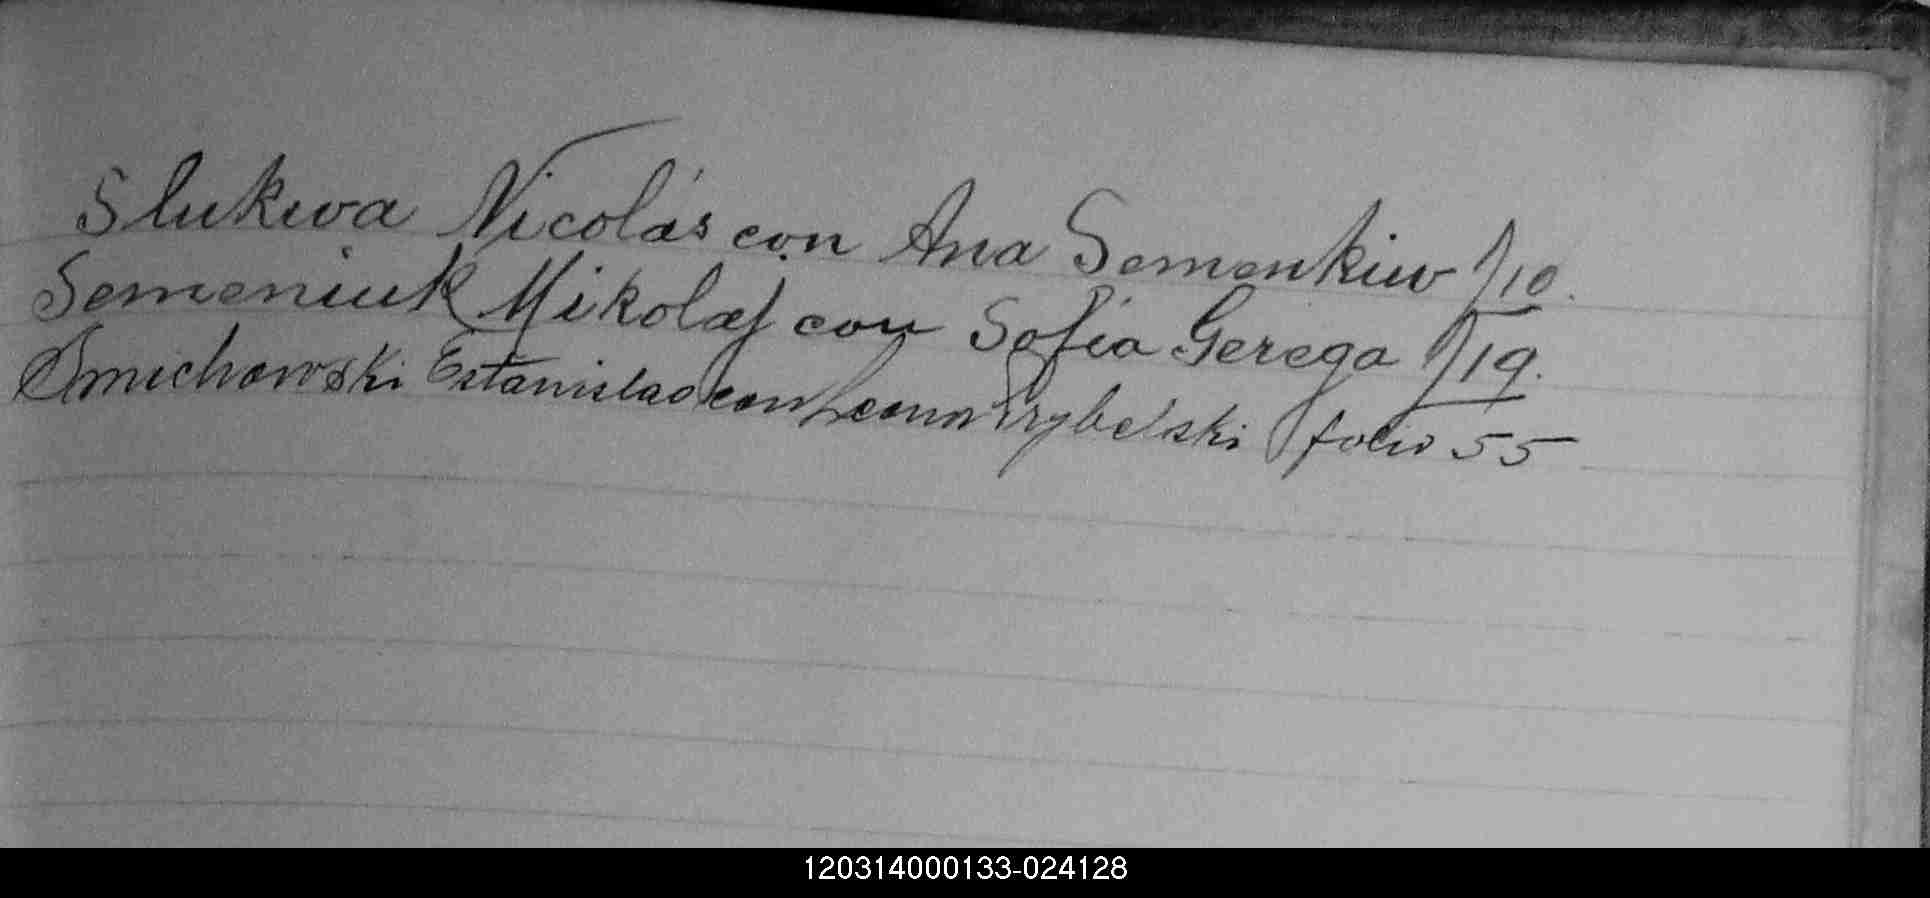 Slukwa Nicolás con Ana Semenkiw f/10.
Semeniuk Mikolaj con Sofia Gerega f/19.
Smichowski Estanislao con Leona folio 55
120314000133-024128